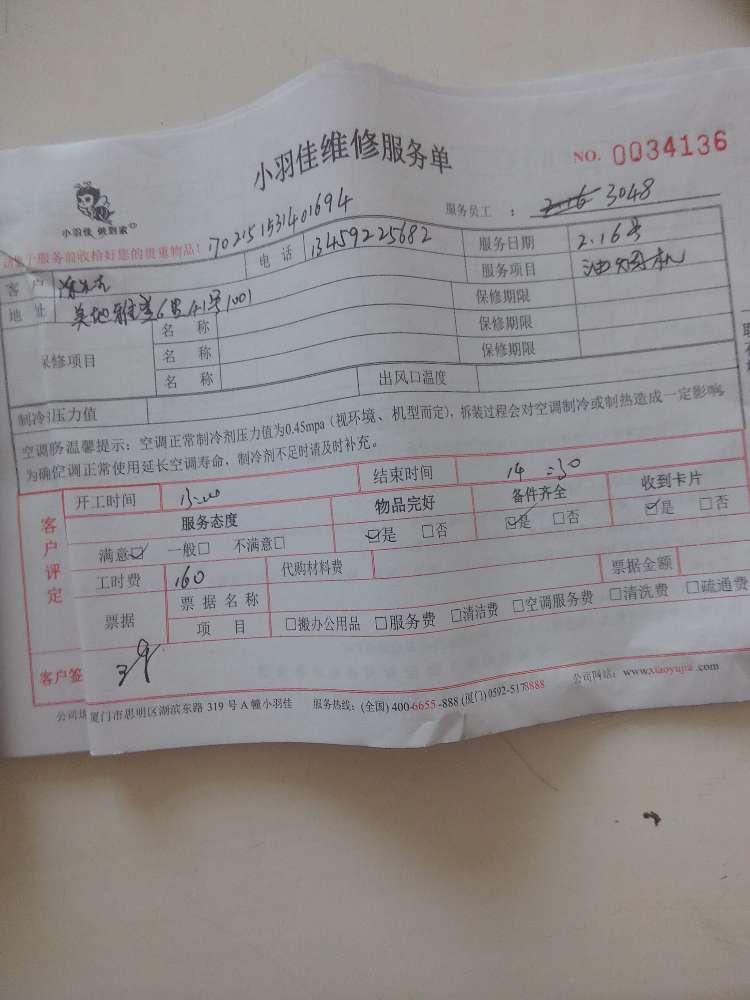 小羽佳维修服务单
NO. 0034136
小羽佳 做到家
服务员工 : 3048
服务前收拾好您的贵重物品!
1702151531401694
客户
电话 13459225682
服务日期 2.16号
地址 美地雅登 1001
服务项目 油烟机
保修项目
名称 保修期限
名称 保修期限
名称 保修期限
制冷剂压力值
出风口温度
空调肠温馨提示:空调正常制冷剂压力值为0.45mpa(视环境、机型而定),拆装过程会对空调制冷或制热造成一定影响
为确促调正常使用延长空调寿命,制冷剂不足时请及时补充。
客户评定
开工时间 13:00
结束时间 14:30
服务态度 物品完好 备件齐全 收到卡片
满意☑ 一般□ 不满意□ ☑是 □否 ☑是 □否 ☑是 □否
工时费 160 代购材料费 票据金额
票据 票据名称
项目 □搬办公用品 □服务费 □清洁费 □空调服务费 □清洗费 □疏通费
客户签
公司地 厦门市思明区湖滨东路 319 号 A 幢小羽佳 服务热线:(全国) 400-6655-888 (厦门) 0592-5178888 公司网站:www.xiaoyujia.com